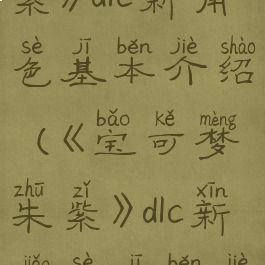 紫》dlc新角
sè jī běn jiè shào
色基本介绍
bǎo kě mèng
(《宝可梦
zhū zǐ xīn
朱紫》dlc新
jiǎo sè jī běn jiè